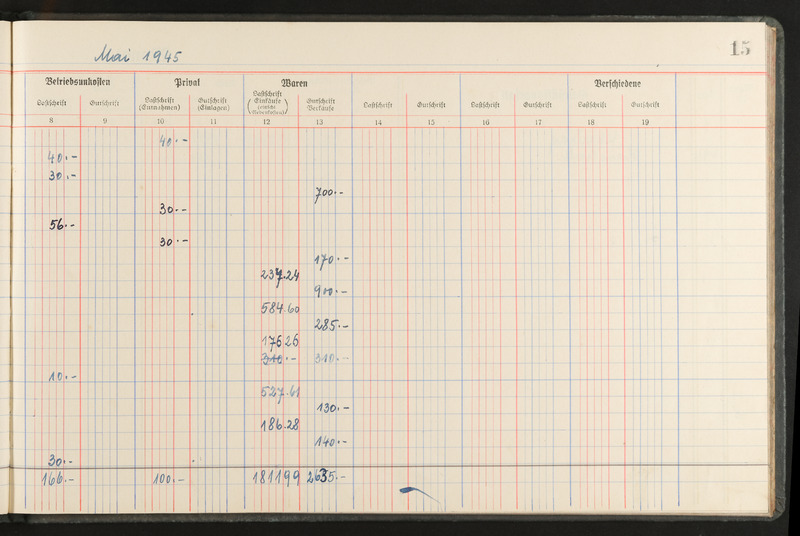 15
Mai 1945
Betriebsunkosten Privat Waren Verschiedene
Lastschrift Gutschrift Lastschrift (Entnahmen) Gutschrift (Einlagen) Lastschrift (Einkäufe einschl. Nebenkosten) Gutschrift Verkäufe Lastschrift Gutschrift Lastschrift Gutschrift Lastschrift Gutschrift
8 9 10 11 12 13 14 15 16 17 18 19
40.-
40.-
30.-
700.-
30.-
56.-
30.-
170.-
237.24
900.-
584.60
285.-
17626
310.- 310.-
10.-
527.61
130.-
186.28
140.-
30.-
166.- 100.- 181199 2635.-